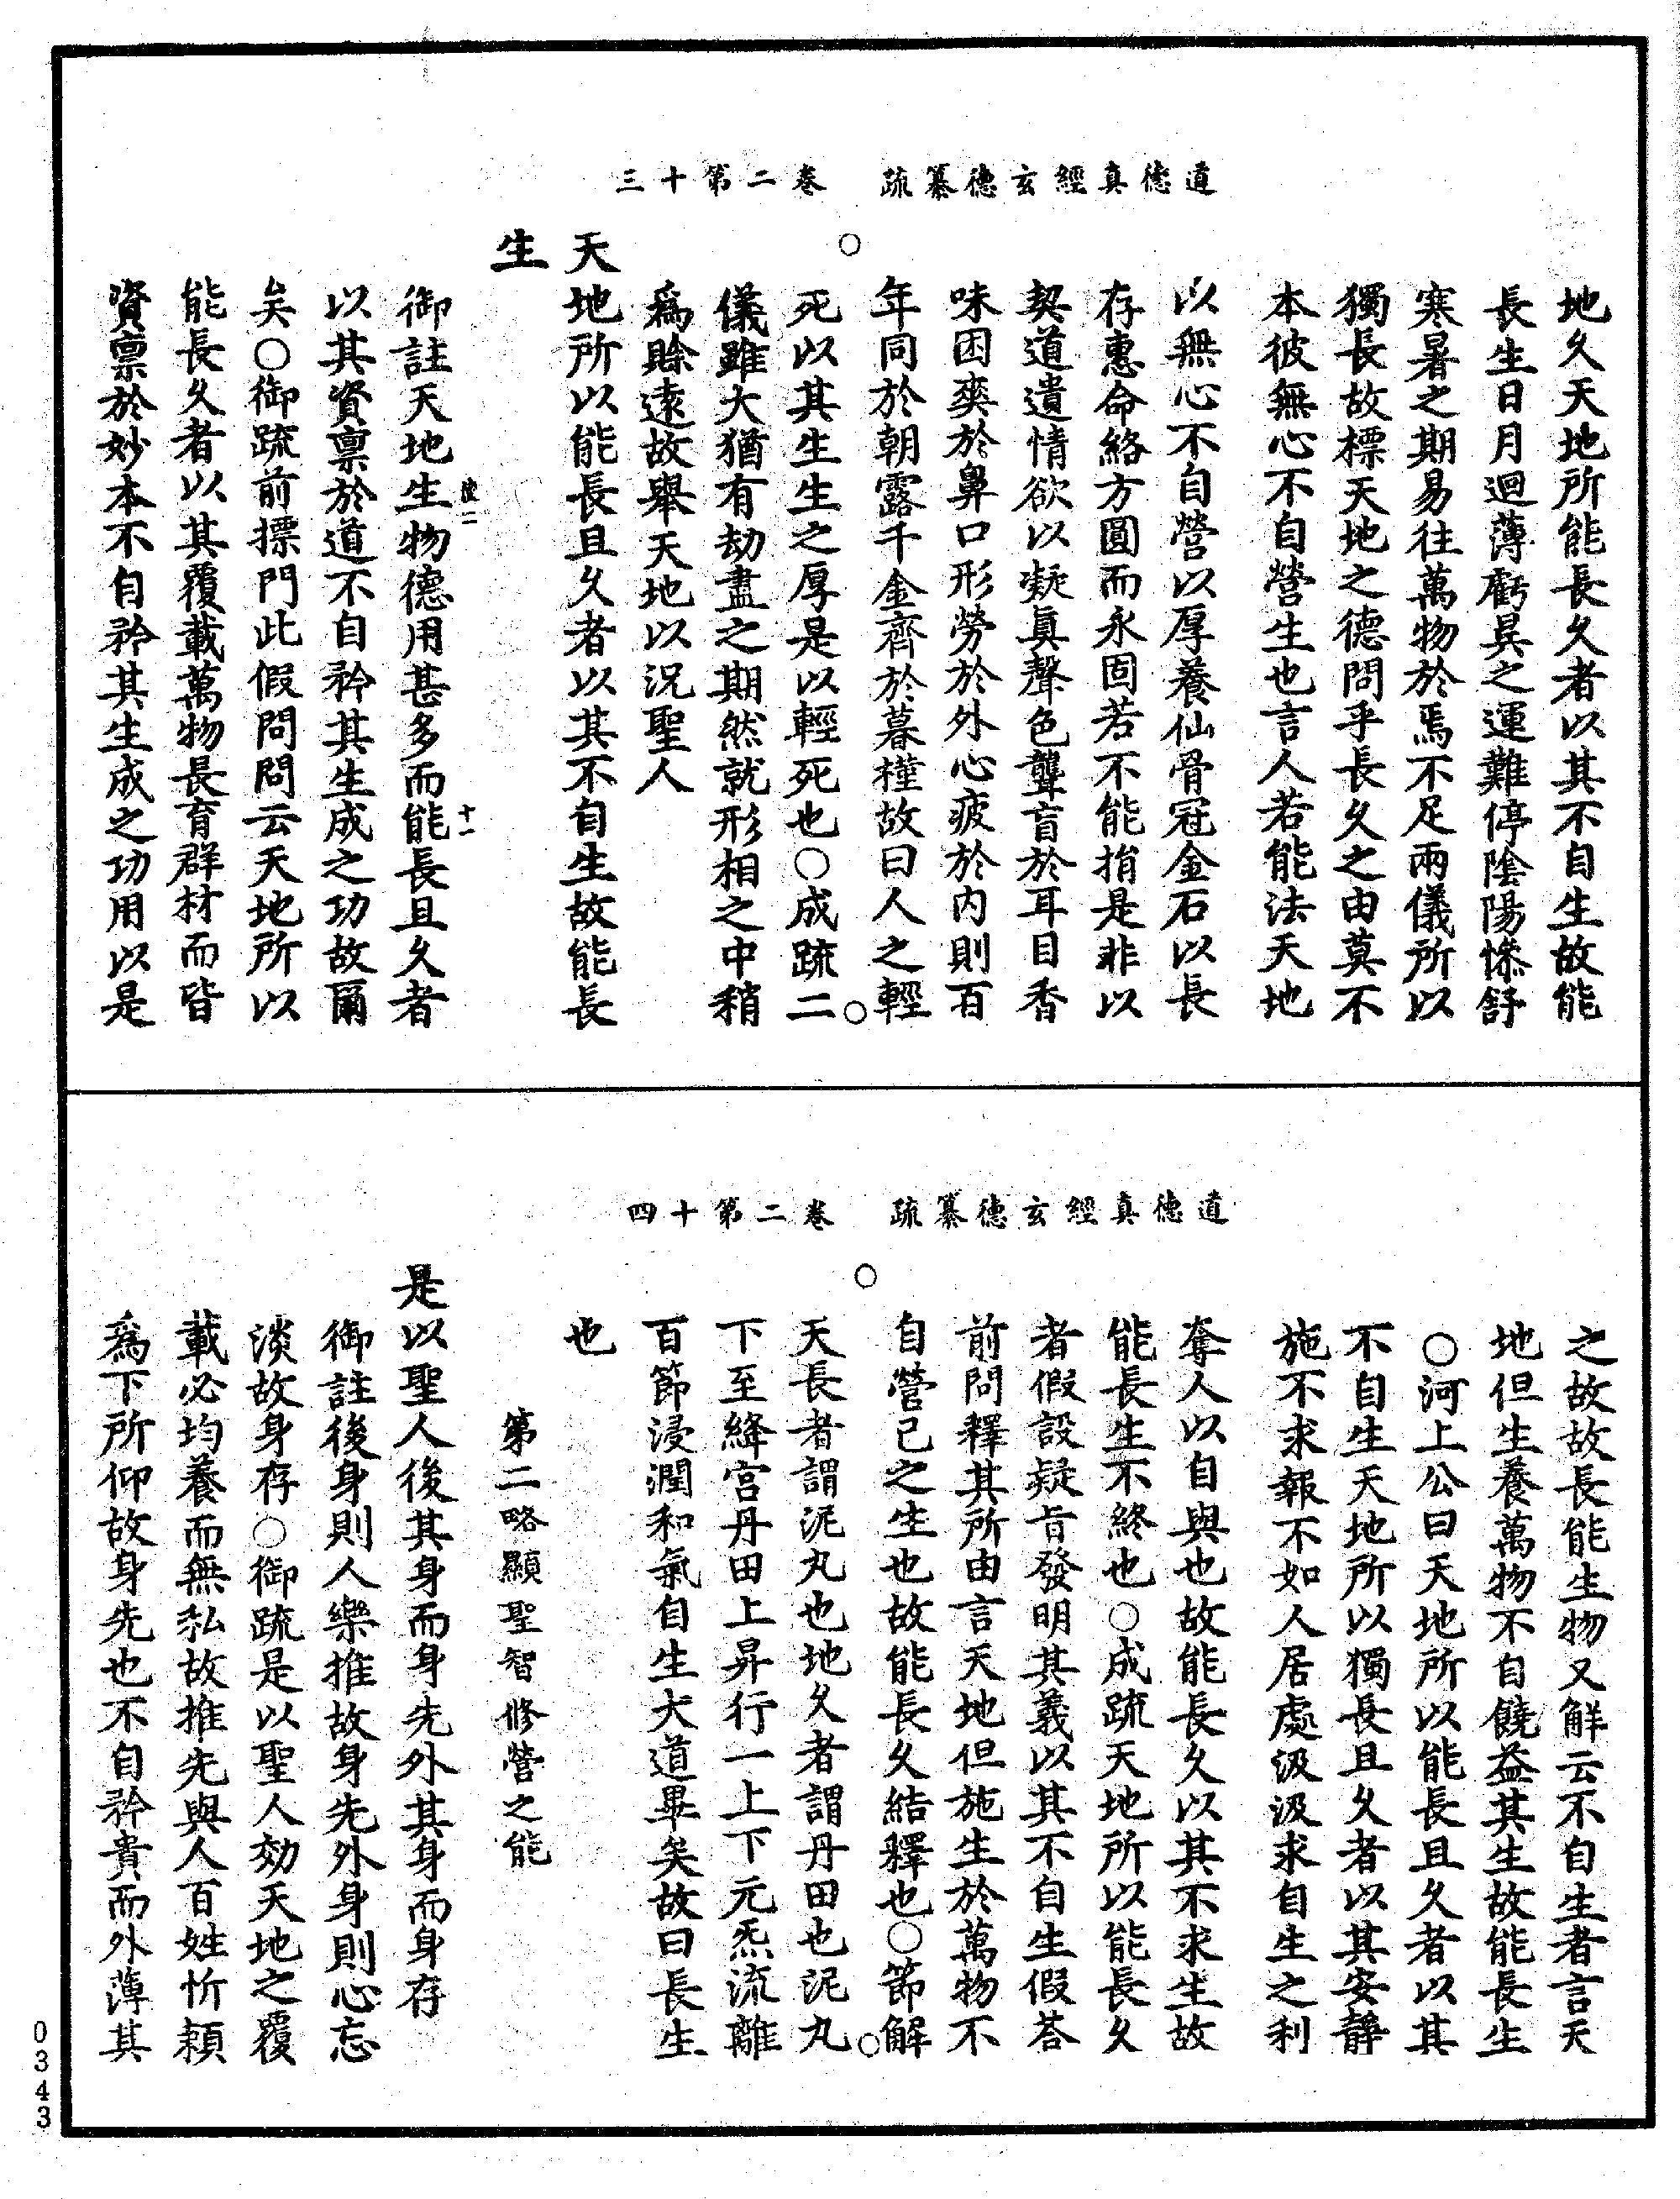 道德真經玄德纂疏　卷二第十三
地久天地所能長久者以其不自生故能
長生日月迴薄虧昃之運難停陰陽慘舒
寒暑之期易往萬物於焉不足兩儀所以
獨長故標天地之德問乎長久之由莫不
本彼無心不自營生也言人若能法天地
以無心不自營以厚養仙骨冠金石以長
存惠命絡方圓而永固若不能捐是非以
契道遺情欲以凝真聲色聾盲於耳目香
味困爽於鼻口形勞於外心疲於內則百
年同於朝露千金齊於暮槿故曰人之輕
死以其生生之厚是以輕死也○成疏二
儀雖大猶有劫盡之期然就形相之中稍
爲賒遠故舉天地以況聖人
天地所以能長且久者以其不自生故能長
生
御註天地生物德用甚多而能長且久者
以其資禀於道不自矜其生成之功故爾
矣○御疏前摽門此假問問云天地所以
能長久者以其覆載萬物長育群材而皆
資禀於妙本不自矜其生成之功用以是
道德真經玄德纂疏　卷二第十四
之故故長能生物又解云不自生者言天
地但生養萬物不自饒益其生故能長生
○河上公曰天地所以能長且久者以其
不自生天地所以獨長且久者以其安靜
施不求報不如人居處汲汲求自生之利
奪人以自與也故能長久以其不求生故
能長生不終也○成疏天地所以能長久
者假設疑旨發明其義以其不自生假荅
前問釋其所由言天地但施生於萬物不
自營己之生也故能長久結釋也○節解
天長者謂泥丸也地久者謂丹田也泥丸
下至絳宮丹田上昇行一上下元炁流離
百節浸潤和氣自生大道畢矣故曰長生
也
第二略顯聖智修營之能
是以聖人後其身而身先外其身而身存
御註後身則人樂推故身先外身則心忘
淡故身存○御疏是以聖人効天地之覆
載必均養而無私故推先與人百姓忻賴
爲下所仰故身先也不自矜貴而外薄其
0343